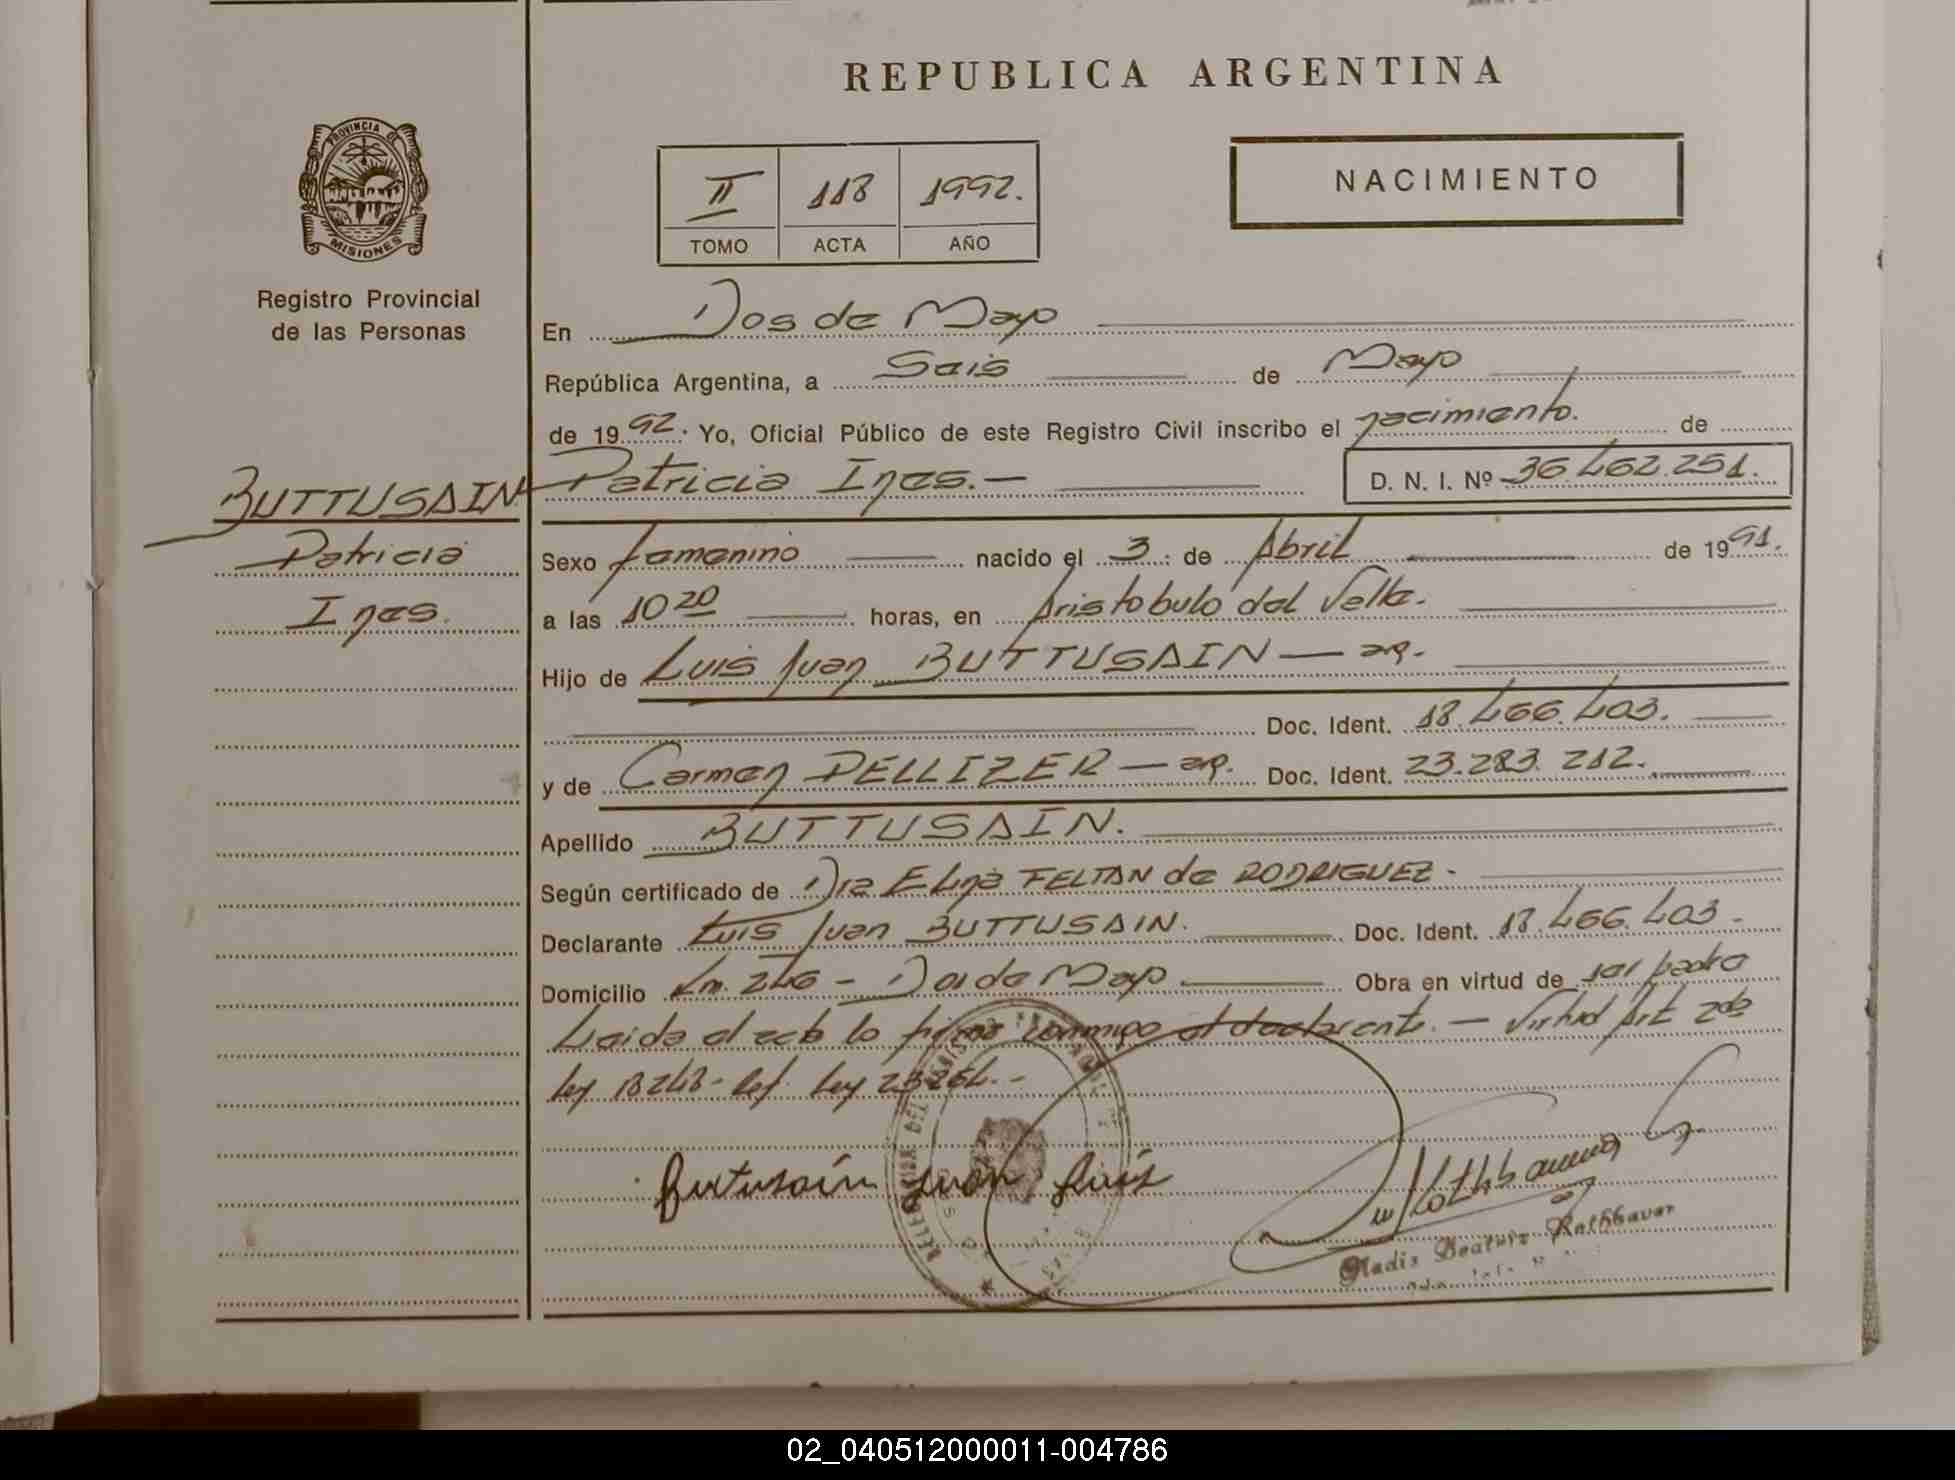 REPUBLICA ARGENTINA
PROVINCIA DE
MISIONES
Registro Provincial
de las Personas
II 118 1992.
TOMO ACTA AÑO
NACIMIENTO
En Dos de Mayo
República Argentina, a Seis de Mayo
de 1992. Yo, Oficial Público de este Registro Civil inscribo el nacimiento. de
BUTTUSAIN Patricia Ines.— D. N. I. Nº 36.462.251.
Patricia
Ines.
Sexo femenino nacido el 3 de Abril de 1991.
a las 10 20 horas, en Aristobulo del Valle.
Hijo de Luis Juan BUTTUSAIN — ar.
Doc. Ident. 18.466.403.
y de Carmen PELLIZER — ar. Doc. Ident. 23.283.212.
Apellido BUTTUSAIN.
Según certificado de Dra Elina FELTAN de RODRIGUEZ -
Declarante Luis Juan BUTTUSAIN. Doc. Ident. 18.466.403.
Domicilio Km. 246 - Dos de Mayo Obra en virtud de ser padre
Leida el acta lo firma conmigo el declarante. — Virtud Art 2do
ley 18248- Ref. Ley 23264.-
Buttusaín Juan Luis
Gladis Beatriz Rathbauer
02_040512000011-004786